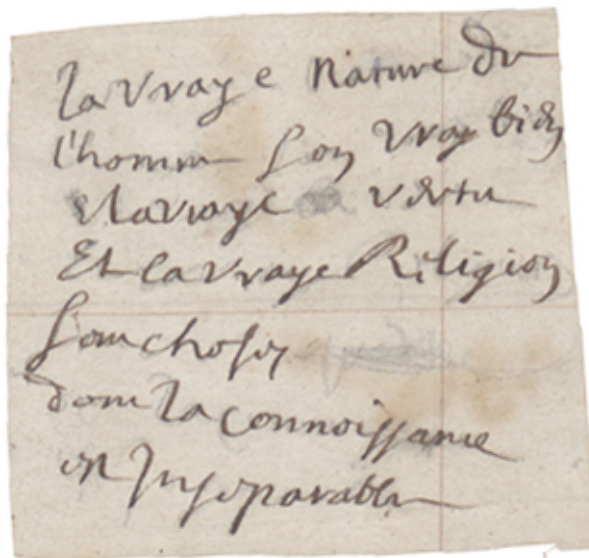 La vraye Nature de
l'homme son vray bien
et la vraye vertu
Et la vraye Religion
sont choses
dont la connoissance
est Inseparable